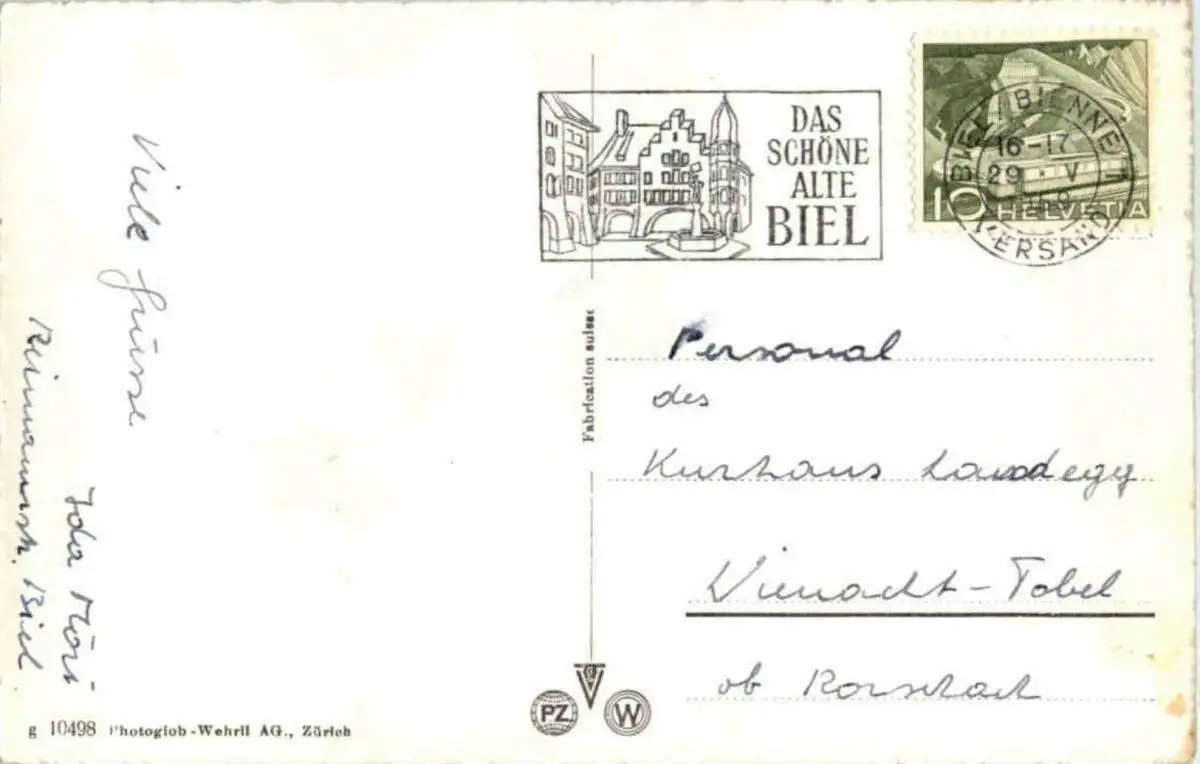 Viele Grüsse
Ida Möri
Reimannstr. Biel
g 10498 Photoglob-Wehrli AG., Zürich
Fabrication suisse
PZ
W
DAS
SCHÖNE
ALTE
BIEL
BIEL / BIENNE 1
16-17
29 V
VERSAND
10 HELVETIA
Personal
des
Kurhaus Landegg
Wienacht-Tobel
ob Rorschach